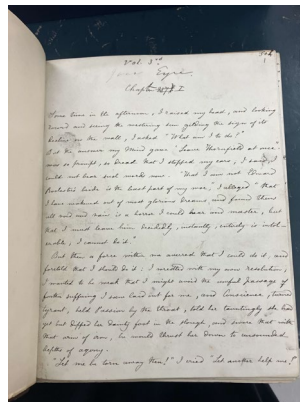 Vol. 3rd
Jane Eyre.
Chapter I
1
Some time in the afternoon, I raised my head, and looking
round and seeing the westering sun gilding the sign of its
decline on the wall, I asked "What am I to do?"
But the answer my mind gave "Leave Thornfield at once"
was so prompt, so dread that I stopped my ears; I said, I
could not bear such words now. "That I am not Edward
Rochester's bride is the least part of my woe," I alleged "that
I have wakened out of most glorious dreams and found them
all void and vain is a horror I could bear and master; but
that I must leave him decidedly, instantly, entirely is intol-
erable, I cannot do it."
But then a voice within me averred that I could do it, and
foretold that I should do it; I wrestled with my own resolution;
I wanted to be weak that I might avoid the awful passage of
further suffering I saw laid out for me; and Conscience, turned
tyrant, held Passion by the throat, told her tauntingly she had
yet but dipped her dainty foot in the slough, and swore that with
that arm of iron, he would thrust her down to unsounded
depths of agony.
"Let me be torn away then!" I cried "Let another help me!"